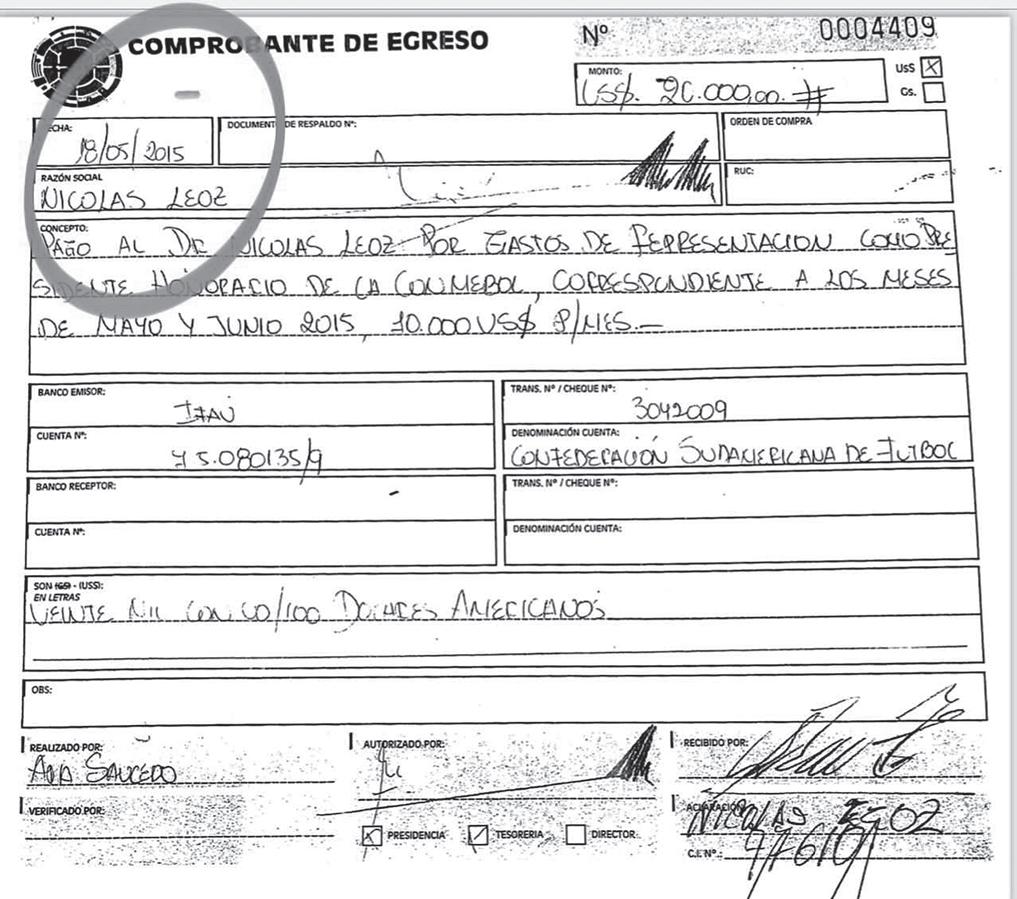 COMPROBANTE DE EGRESO
Nº 0004409
MONTO:
US$. 20.000,00. #
US$ X
Gs.
FECHA:
18/05/2015
DOCUMENTO DE RESPALDO Nº:
ORDEN DE COMPRA
RAZÓN SOCIAL
NICOLAS LEOZ
RUC:
CONCEPTO:
PAGO AL DR. NICOLAS LEOZ POR GASTOS DE REPRESENTACION COMO PRE
SIDENTE HONORARIO DE LA CONMEBOL, CORRESPONDIENTE A LOS MESES
DE MAYO Y JUNIO 2015, 10.000 US$ P/MES.—
BANCO EMISOR:
ITAU
TRANS. Nº / CHEQUE Nº:
3042009
CUENTA Nº:
75.080135/9
DENOMINACIÓN CUENTA:
CONFEDERACION SUDAMERICANA DE FUTBOL
BANCO RECEPTOR:
TRANS. Nº / CHEQUE Nº:
CUENTA Nº:
DENOMINACIÓN CUENTA:
SON (GS) - (US$):
EN LETRAS
VEINTE MIL CON 00/100 DOLARES AMERICANOS
OBS:
REALIZADO POR:
ANA SAUCEDO
AUTORIZADO POR:
RECIBIDO POR:
VERIFICADO POR:
X PRESIDENCIA
TESORERIA
DIRECTOR
ACLARACIÓN
NICOLAS LEOZ
C.I. Nº.: